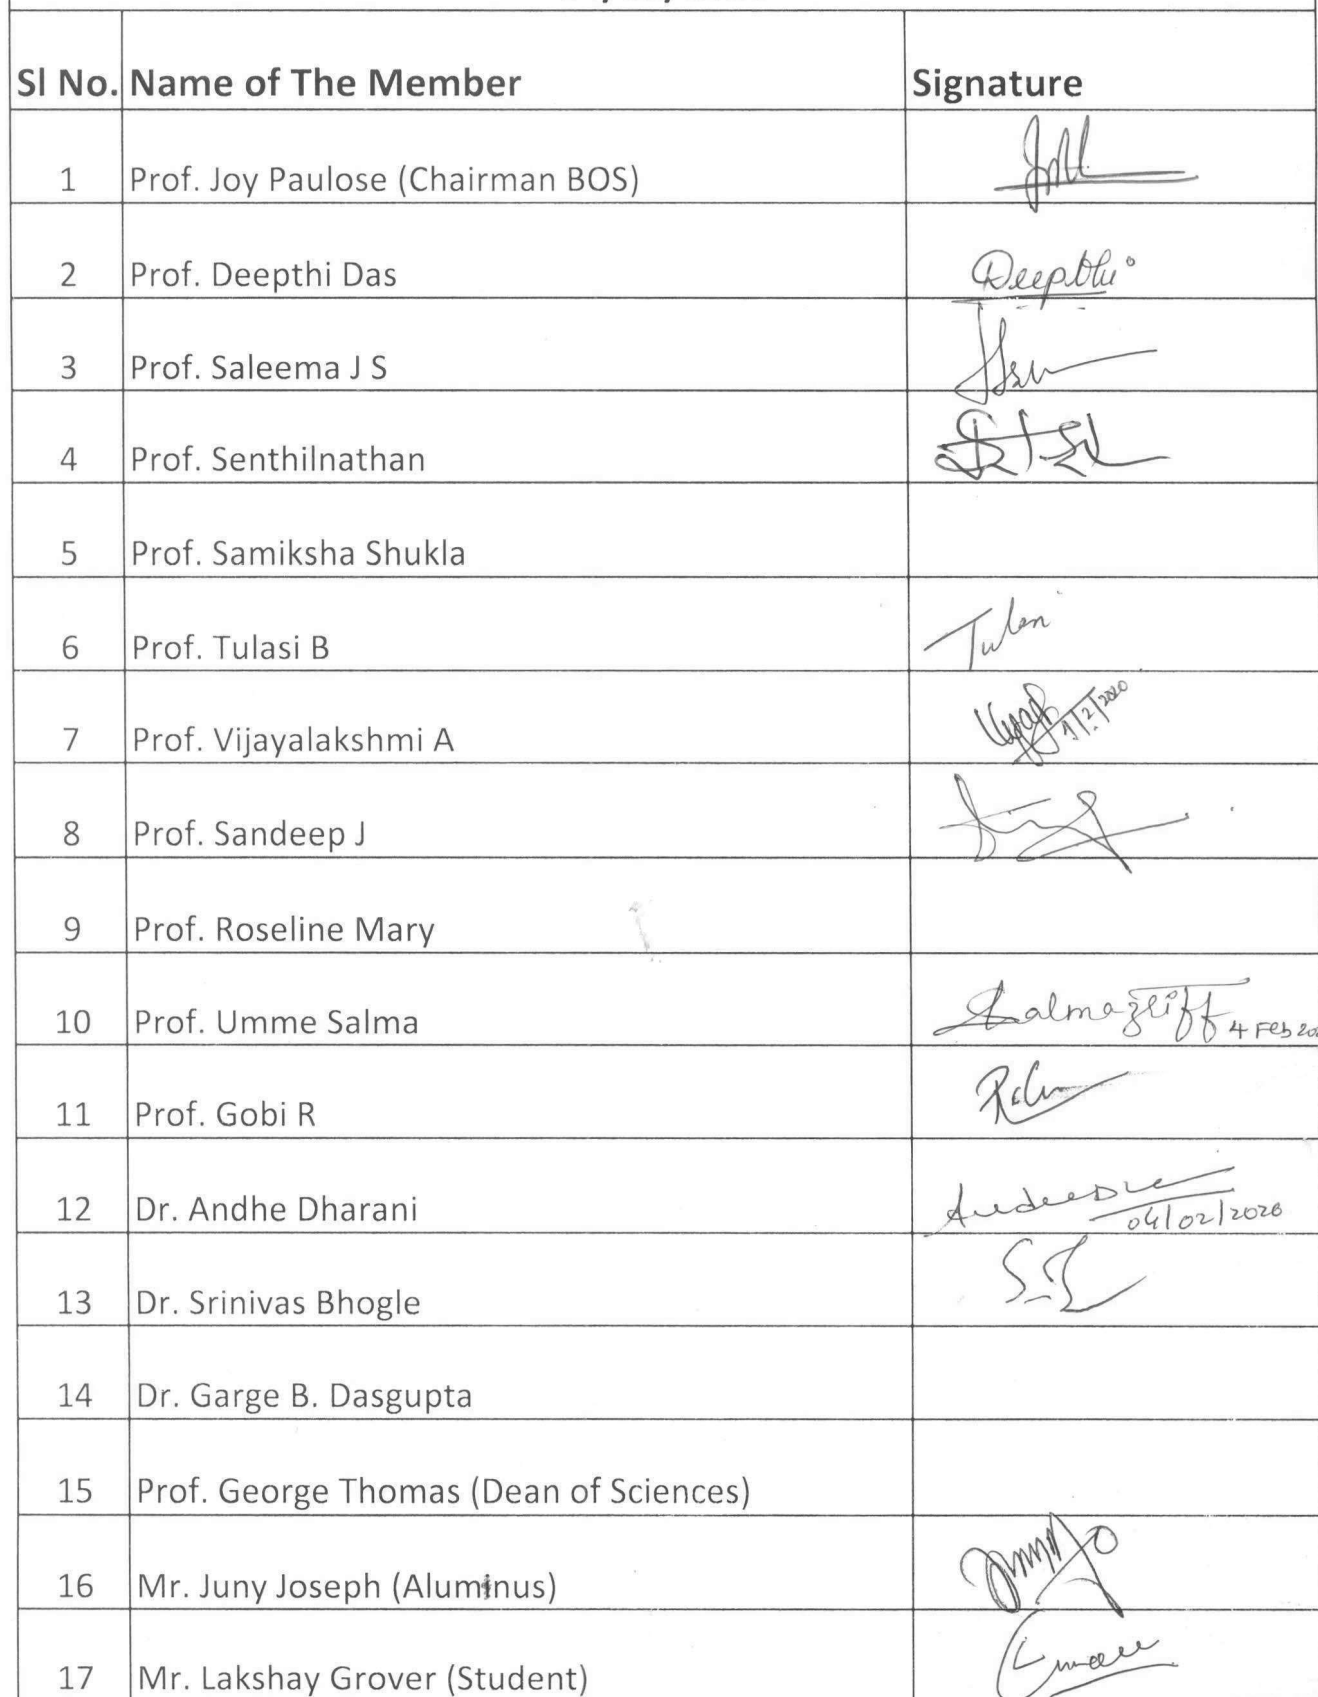 Sl No. Name of The Member Signature
1 Prof. Joy Paulose (Chairman BOS)
2 Prof. Deepthi Das Deepthi
3 Prof. Saleema J S
4 Prof. Senthilnathan
5 Prof. Samiksha Shukla
6 Prof. Tulasi B
7 Prof. Vijayalakshmi A 4/2/2020
8 Prof. Sandeep J
9 Prof. Roseline Mary
10 Prof. Umme Salma 4 Feb 20
11 Prof. Gobi R
12 Dr. Andhe Dharani
04/02/2020
13 Dr. Srinivas Bhogle
14 Dr. Garge B. Dasgupta
15 Prof. George Thomas (Dean of Sciences)
16 Mr. Juny Joseph (Aluminus)
17 Mr. Lakshay Grover (Student)